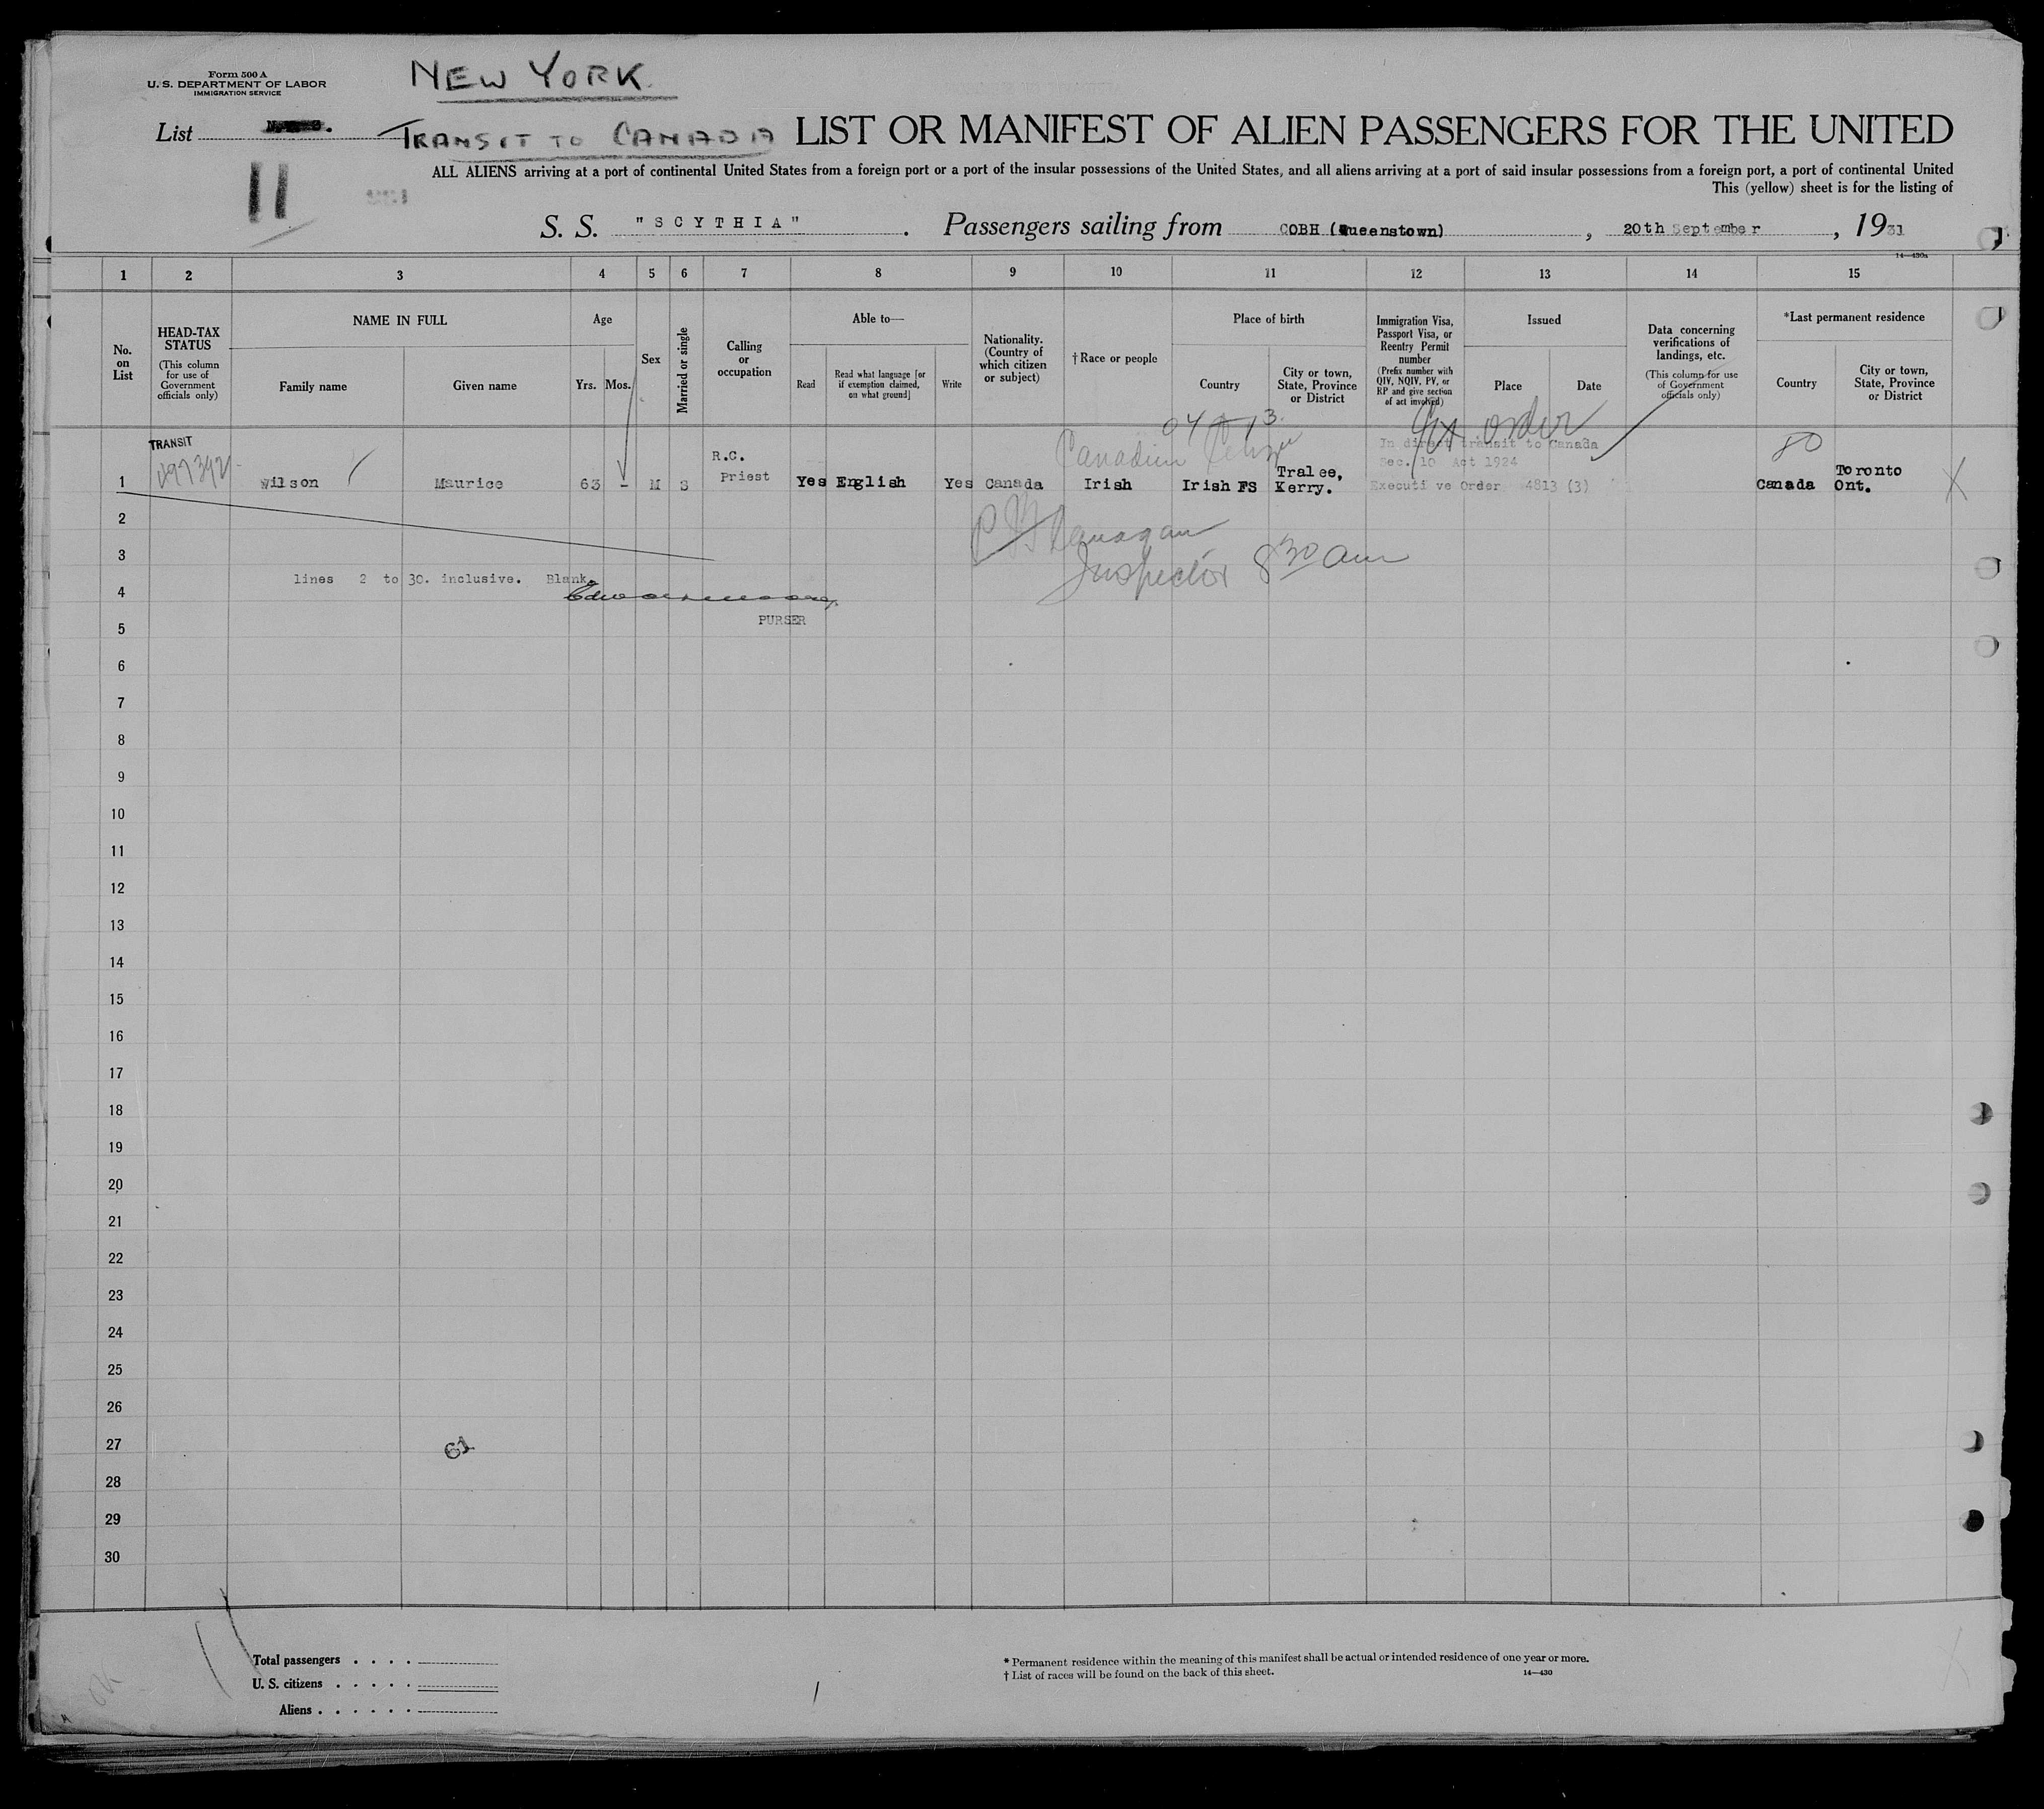 Form 500 A
U. S. DEPARTMENT OF LABOR
IMMIGRATION SERVICE
NEW YORK
List
TRANSIT TO CANADA
LIST OR MANIFEST OF ALIEN PASSENGERS FOR THE UNITED
11
ALL ALIENS arriving at a port of continental United States from a foreign port or a port of the insular possessions of the United States, and all aliens arriving at a port of said insular possessions from a foreign port, a port of continental United
This (yellow) sheet is for the listing of
S. S. "SCYTHIA". Passengers sailing from COBH (Queenstown), 20th September, 1931
14—430a
1 2 3 4 5 6 7 8 9 10 11 12 13 14 15
No. on List
HEAD-TAX STATUS
(This column for use of Government officials only)
NAME IN FULL
Family name
Given name
Age
Yrs.
Mos.
Sex
Married or single
Calling or occupation
Able to—
Read
Read what language [or if exemption claimed, on what ground]
Write
Nationality. (Country of which citizen or subject)
† Race or people
Place of birth
Country
City or town, State, Province or District
Immigration Visa, Passport Visa, or Reentry Permit number
(Prefix number with QIV, NQIV, PV, or RP and give section of act involved)
Issued
Place
Date
Data concerning verifications of landings, etc.
(This column for use of Government officials only)
*Last permanent residence
Country
City or town, State, Province or District
order
TRANSIT
Canadian
In direct transit to Canada
80
R.C.
Sec. 10 Act 1924
1 Wilson Maurice 63 - M S Priest Yes English Yes Canada Irish Irish FS Tralee, Kerry. Executive Order 4813 (3) Canada Toronto Ont.
2
3
Inspector 8 30 am
lines 2 to 30. inclusive. Blank.
4
PURSER
5
6
7
8
9
10
11
12
13
14
15
16
17
18
19
20
21
22
23
24
25
26
27
61
28
29
30
Total passengers . . . .
U. S. citizens . . . . .
Aliens . . . . . .
* Permanent residence within the meaning of this manifest shall be actual or intended residence of one year or more.
† List of races will be found on the back of this sheet.
14—430